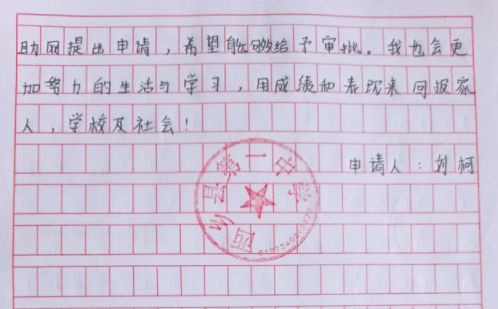 助网提出申请，希望能够给予审批。我也会更
加努力的生活与学习，用成绩和表现来回报家
人，学校及社会！
申请人：刘柯
西乡县第一中学